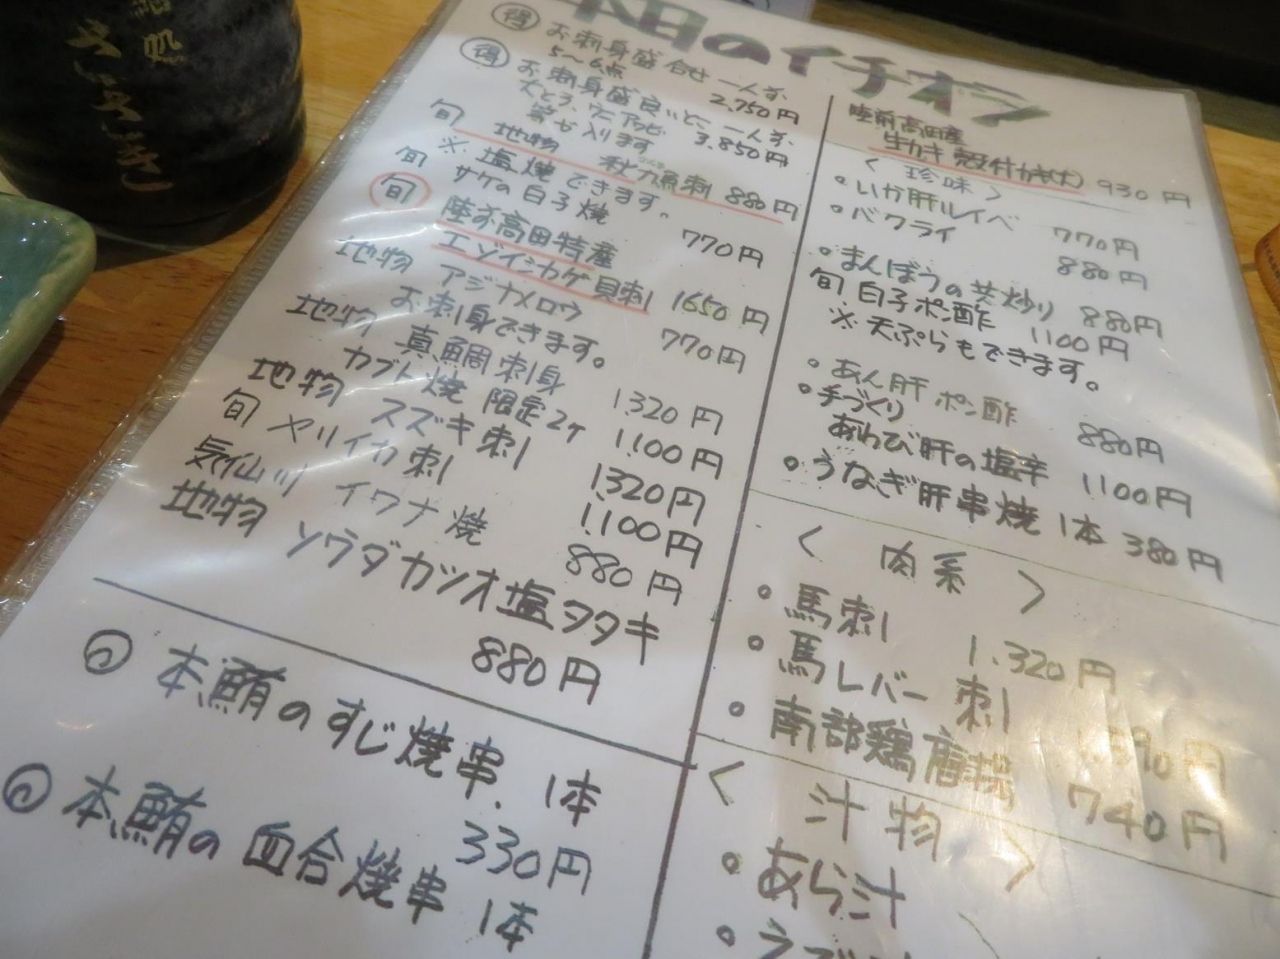 本日のイチオシ
得 お刺身盛合せ 一人前
5〜6点 2,750円
得 お刺身盛良いとこ 一人前
大とろ、ウニ、アワビ 3.850円
等が入ります
旬 地物 秋刀魚刺 880円
※塩焼できます。
旬 サケの白子焼 770円
旬 陸前高田特産
エゾイシカゲ貝刺 1650円
地物 アジナメロウ 770円
お刺身できます。
地物 真鯛刺身 1.320円
カブト焼 限定2ケ 1.100円
地物 スズキ刺 1.320円
旬 ヤリイカ刺 1.100円
気仙川 イワナ焼 880円
地物 ソウダカツオ塩タタキ
880円
本鮪のすじ焼串 1本
330円
本鮪の血合焼串 1本
陸前高田産
生カキ 殻付カキ(大) 930円
〈珍味〉
・いか肝ルイベ 770円
・バクライ 880円
・まんぼうの共炒り 880円
旬 白子ポン酢 1100円
※天ぷらもできます。
・あん肝ポン酢 880円
・手づくり
あわび肝の塩辛 1100円
・うなぎ肝串焼 1本 380円
〈肉系〉
・馬刺 1.320円
・馬レバー刺
・南部鶏唐揚 740円
〈汁物〉
・あら汁